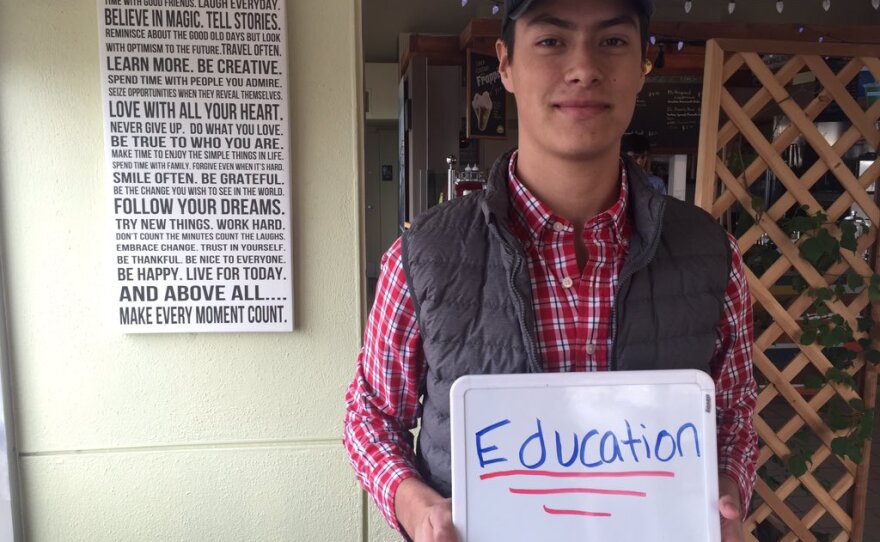 TIME WITH GOOD FRIENDS. LAUGH EVERYDAY.
BELIEVE IN MAGIC. TELL STORIES.
REMINISCE ABOUT THE GOOD OLD DAYS BUT LOOK
WITH OPTIMISM TO THE FUTURE. TRAVEL OFTEN.
LEARN MORE. BE CREATIVE.
SPEND TIME WITH PEOPLE YOU ADMIRE.
SEIZE OPPORTUNITIES WHEN THEY REVEAL THEMSELVES.
LOVE WITH ALL YOUR HEART.
NEVER GIVE UP. DO WHAT YOU LOVE.
BE TRUE TO WHO YOU ARE.
MAKE TIME TO ENJOY THE SIMPLE THINGS IN LIFE.
SPEND TIME WITH FAMILY. FORGIVE EVEN WHEN IT'S HARD.
SMILE OFTEN. BE GRATEFUL.
BE THE CHANGE YOU WISH TO SEE IN THE WORLD.
FOLLOW YOUR DREAMS.
TRY NEW THINGS. WORK HARD.
DON'T COUNT THE MINUTES COUNT THE LAUGHS.
EMBRACE CHANGE. TRUST IN YOURSELF.
BE THANKFUL. BE NICE TO EVERYONE.
BE HAPPY. LIVE FOR TODAY.
AND ABOVE ALL....
MAKE EVERY MOMENT COUNT.
Education